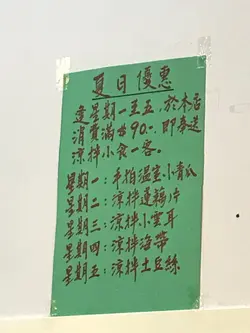 夏日優惠
逢星期一至五,於本店
消費滿$90.-即奉送
涼拌小食一客。
星期一:手拍溫室小青瓜
星期二:涼拌蓮藕片
星期三:涼拌小雲耳
星期四:涼拌海帶
星期五:涼拌土豆絲